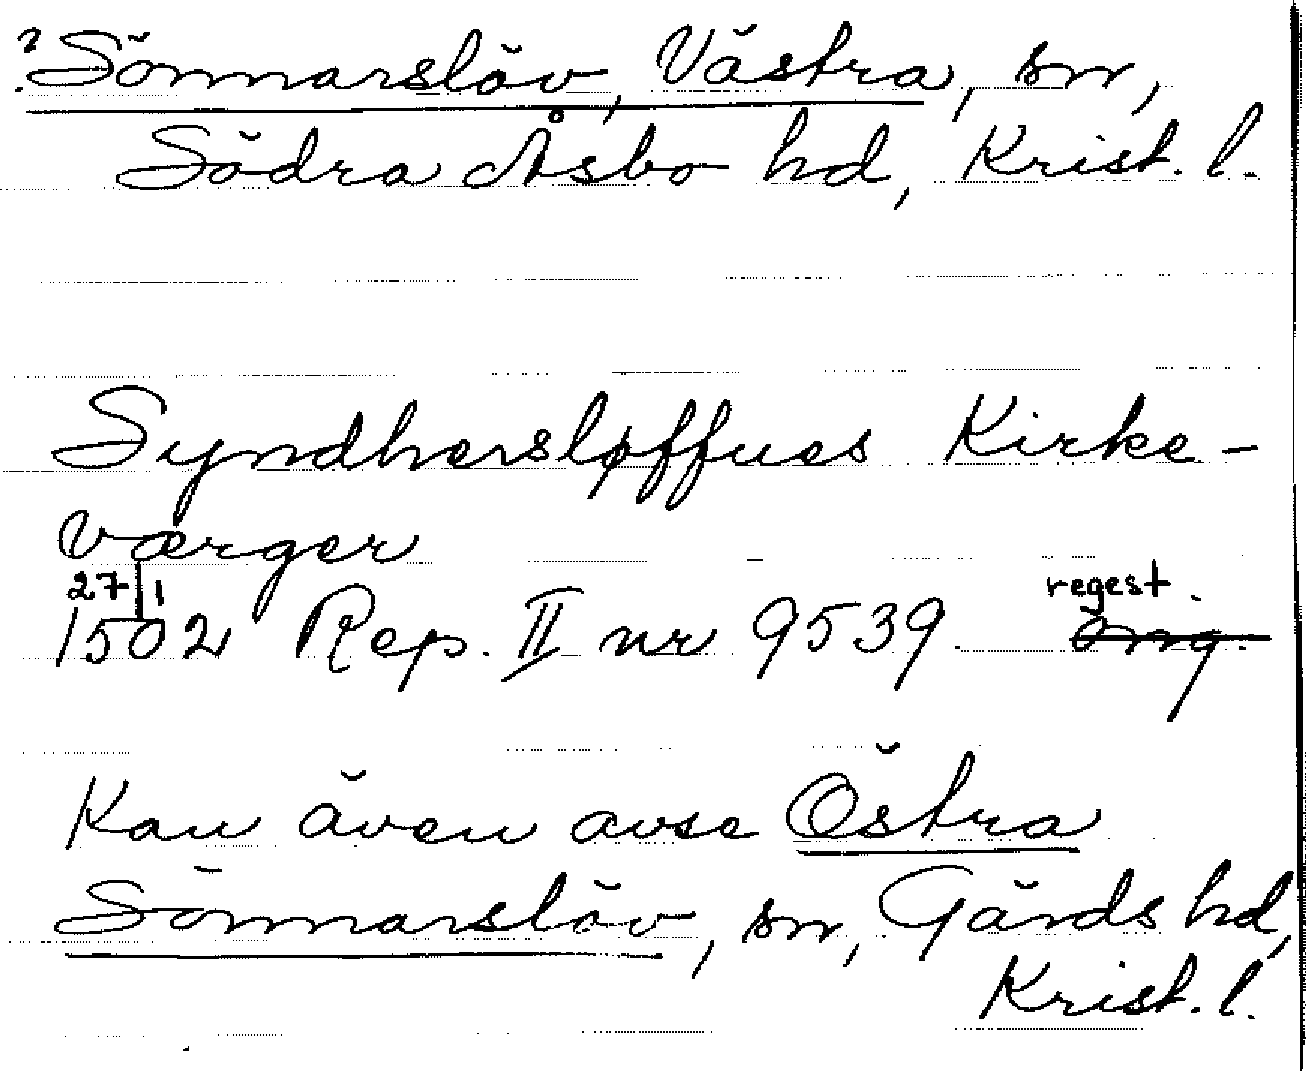 ? Sönnarslöv, Västra, sn,
Södra Åsbo hd, Krist. l.
Syndhersløffues Kirke-
værger
27/1 regest.
1502 Rep. II nr 9539 orig.
Kan även avse Östra
Sönnarslöv, sn, Gärds hd,
Krist. l.